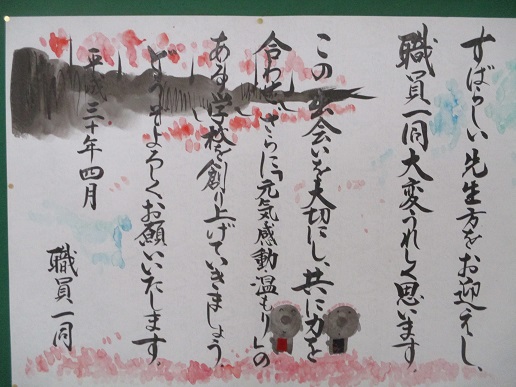 すばらしい先生方をお迎えし、
職員一同大変うれしく思います
この出会いを大切にし、共に力を
合わせ、さらに「元気感動温もり」の
ある学校を創り上げていきましょう
どうぞよろしくお願いいたします。
平成三十年四月
職員一同